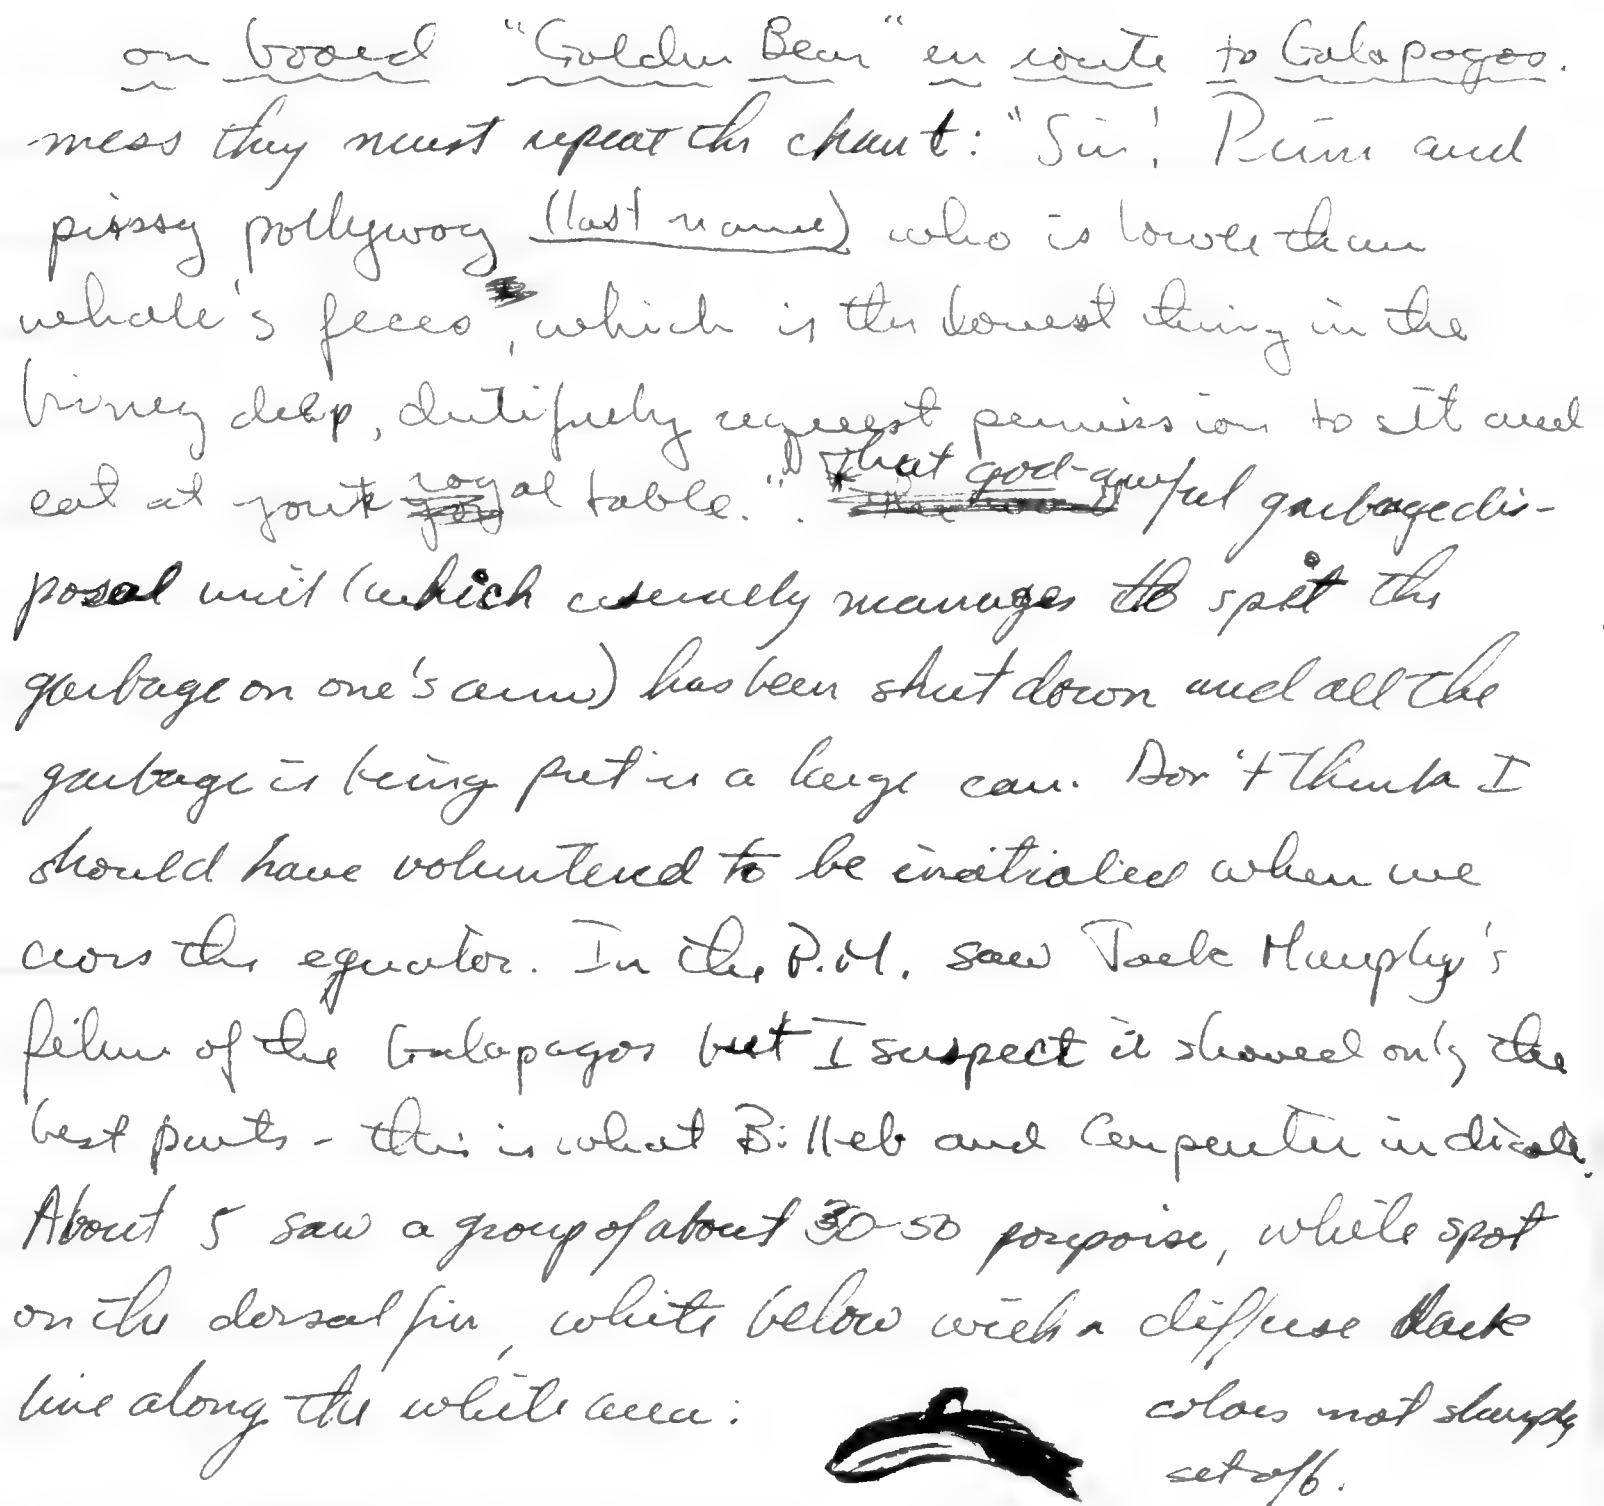 on board "Golden Bear" en route to Galapagos.
mess they must repeat the chant: "Sir! Puny and
pissy pollywog (last name) who is lower than
whale's feces, which is the lowest thing in the
briney deep, dutifully request permission to sit and
eat at your royal table." That god-awful garbage dis-
posal unit (which usually manages to spit the
garbage on one's arm) has been shut down and all the
garbage is being put in a large can. Don't think I
should have volunteered to be initiated when we
cross the equator. In the P.M. saw Jack Murphy's
film of the Galapagos but I suspect it showed only the
best parts - this is what Billeb and Carpenter indicate.
About 5 saw a group of about 30-50 porpoise, white spot
on the dorsal fin, white below with a diffuse dark
line along the white area:
colors not sharply
set off.